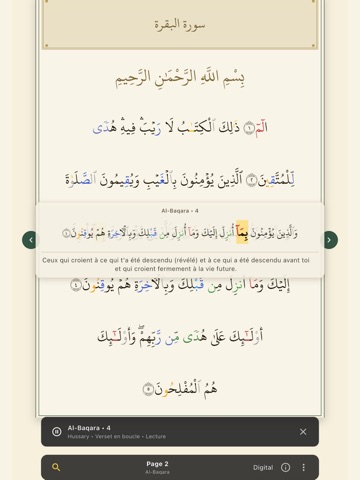 سورة البقرة
بِسْمِ اللَّهِ الرَّحْمَٰنِ الرَّحِيمِ
الٓمٓ ١ ذَٰلِكَ الْكِتَٰبُ لَا رَيْبَ ۛ فِيهِ ۛ هُدًى
لِّلْمُتَّقِينَ ٢ الَّذِينَ يُؤْمِنُونَ بِالْغَيْبِ وَيُقِيمُونَ الصَّلَوٰةَ
Al-Baqara • 4
وَالَّذِينَ يُؤْمِنُونَ بِمَآ أُنزِلَ إِلَيْكَ وَمَآ أُنزِلَ مِن قَبْلِكَ وَبِالْآخِرَةِ هُمْ يُوقِنُونَ ٤
Ceux qui croient à ce qui t'a été descendu (révélé) et à ce qui a été descendu avant toi
et qui croient fermement à la vie future.
إِلَيْكَ وَمَآ أُنزِلَ مِن قَبْلِكَ وَبِالْآخِرَةِ هُمْ يُوقِنُونَ ٤
أُوْلَٰٓئِكَ عَلَىٰ هُدًى مِّن رَّبِّهِمْ ۖ وَأُوْلَٰٓئِكَ
هُمُ الْمُفْلِحُونَ ٥
Al-Baqara • 4
Hussary • Verset en boucle • Lecture
Page 2
Al-Baqara
Digital